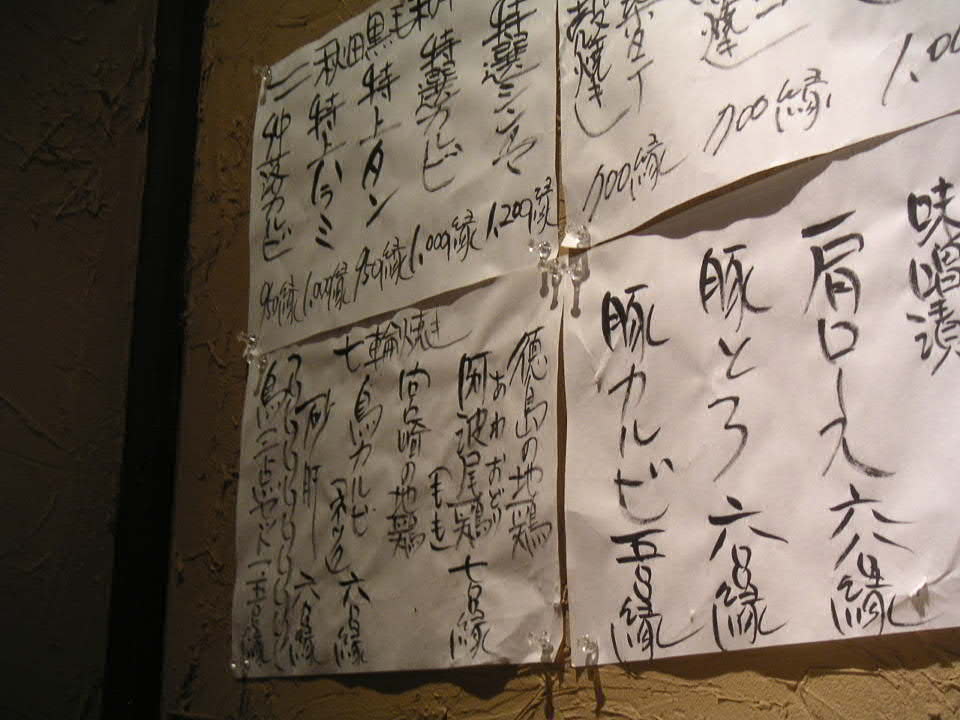 味噌漬
肩ロース 六〇縁
豚とろ 六〇縁
豚カルビ 五〇縁
1,00
700縁
焼き
700縁
特選 1,200縁
特選カルビ 1,000縁
秋田黒毛和牛
特上タン 950縁
特上ハラミ 1,000縁
中落カルビ 950縁
徳島の地鶏
あわおどり
阿波尾鶏 (もも) 七〇縁
宮崎の地鶏
七輪焼き
鳥カルビ (ネック) 六〇縁
砂肝 六〇縁
鳥三点セット 一五〇縁